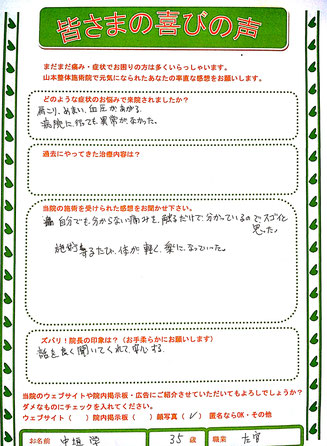 皆さまの喜びの声
まだまだ痛み・症状でお困りの方は多くいらっしゃいます。
山本整体施術院で元気になられたあなたの率直な感想をお願いします。
どのような症状のお悩みで来院されましたか？
肩こり、めまい、血圧があがる。
病院に行っても異常がなかった。
過去にやってきた治療内容は？
当院の施術を受けられた感想をお聞かせ下さい。
自分でも分からない痛みを、触るだけで、分かっているのでスゴイと
思った。
施術するたび、体が軽く、楽になっていった。
ズバリ！院長の印象は？（お手柔らかにお願いします）
話を良く聞いてくれて、安心する
当院のウェブサイトや院内掲示板・広告にご紹介させていただいてもよろしでしょうか？
ダメなものにチェックを入れてください。
ウェブサイト（　）院内掲示板（　）顔写真（✓）匿名ならOK・その他
お名前 中垣 学 35 歳 職業 左官